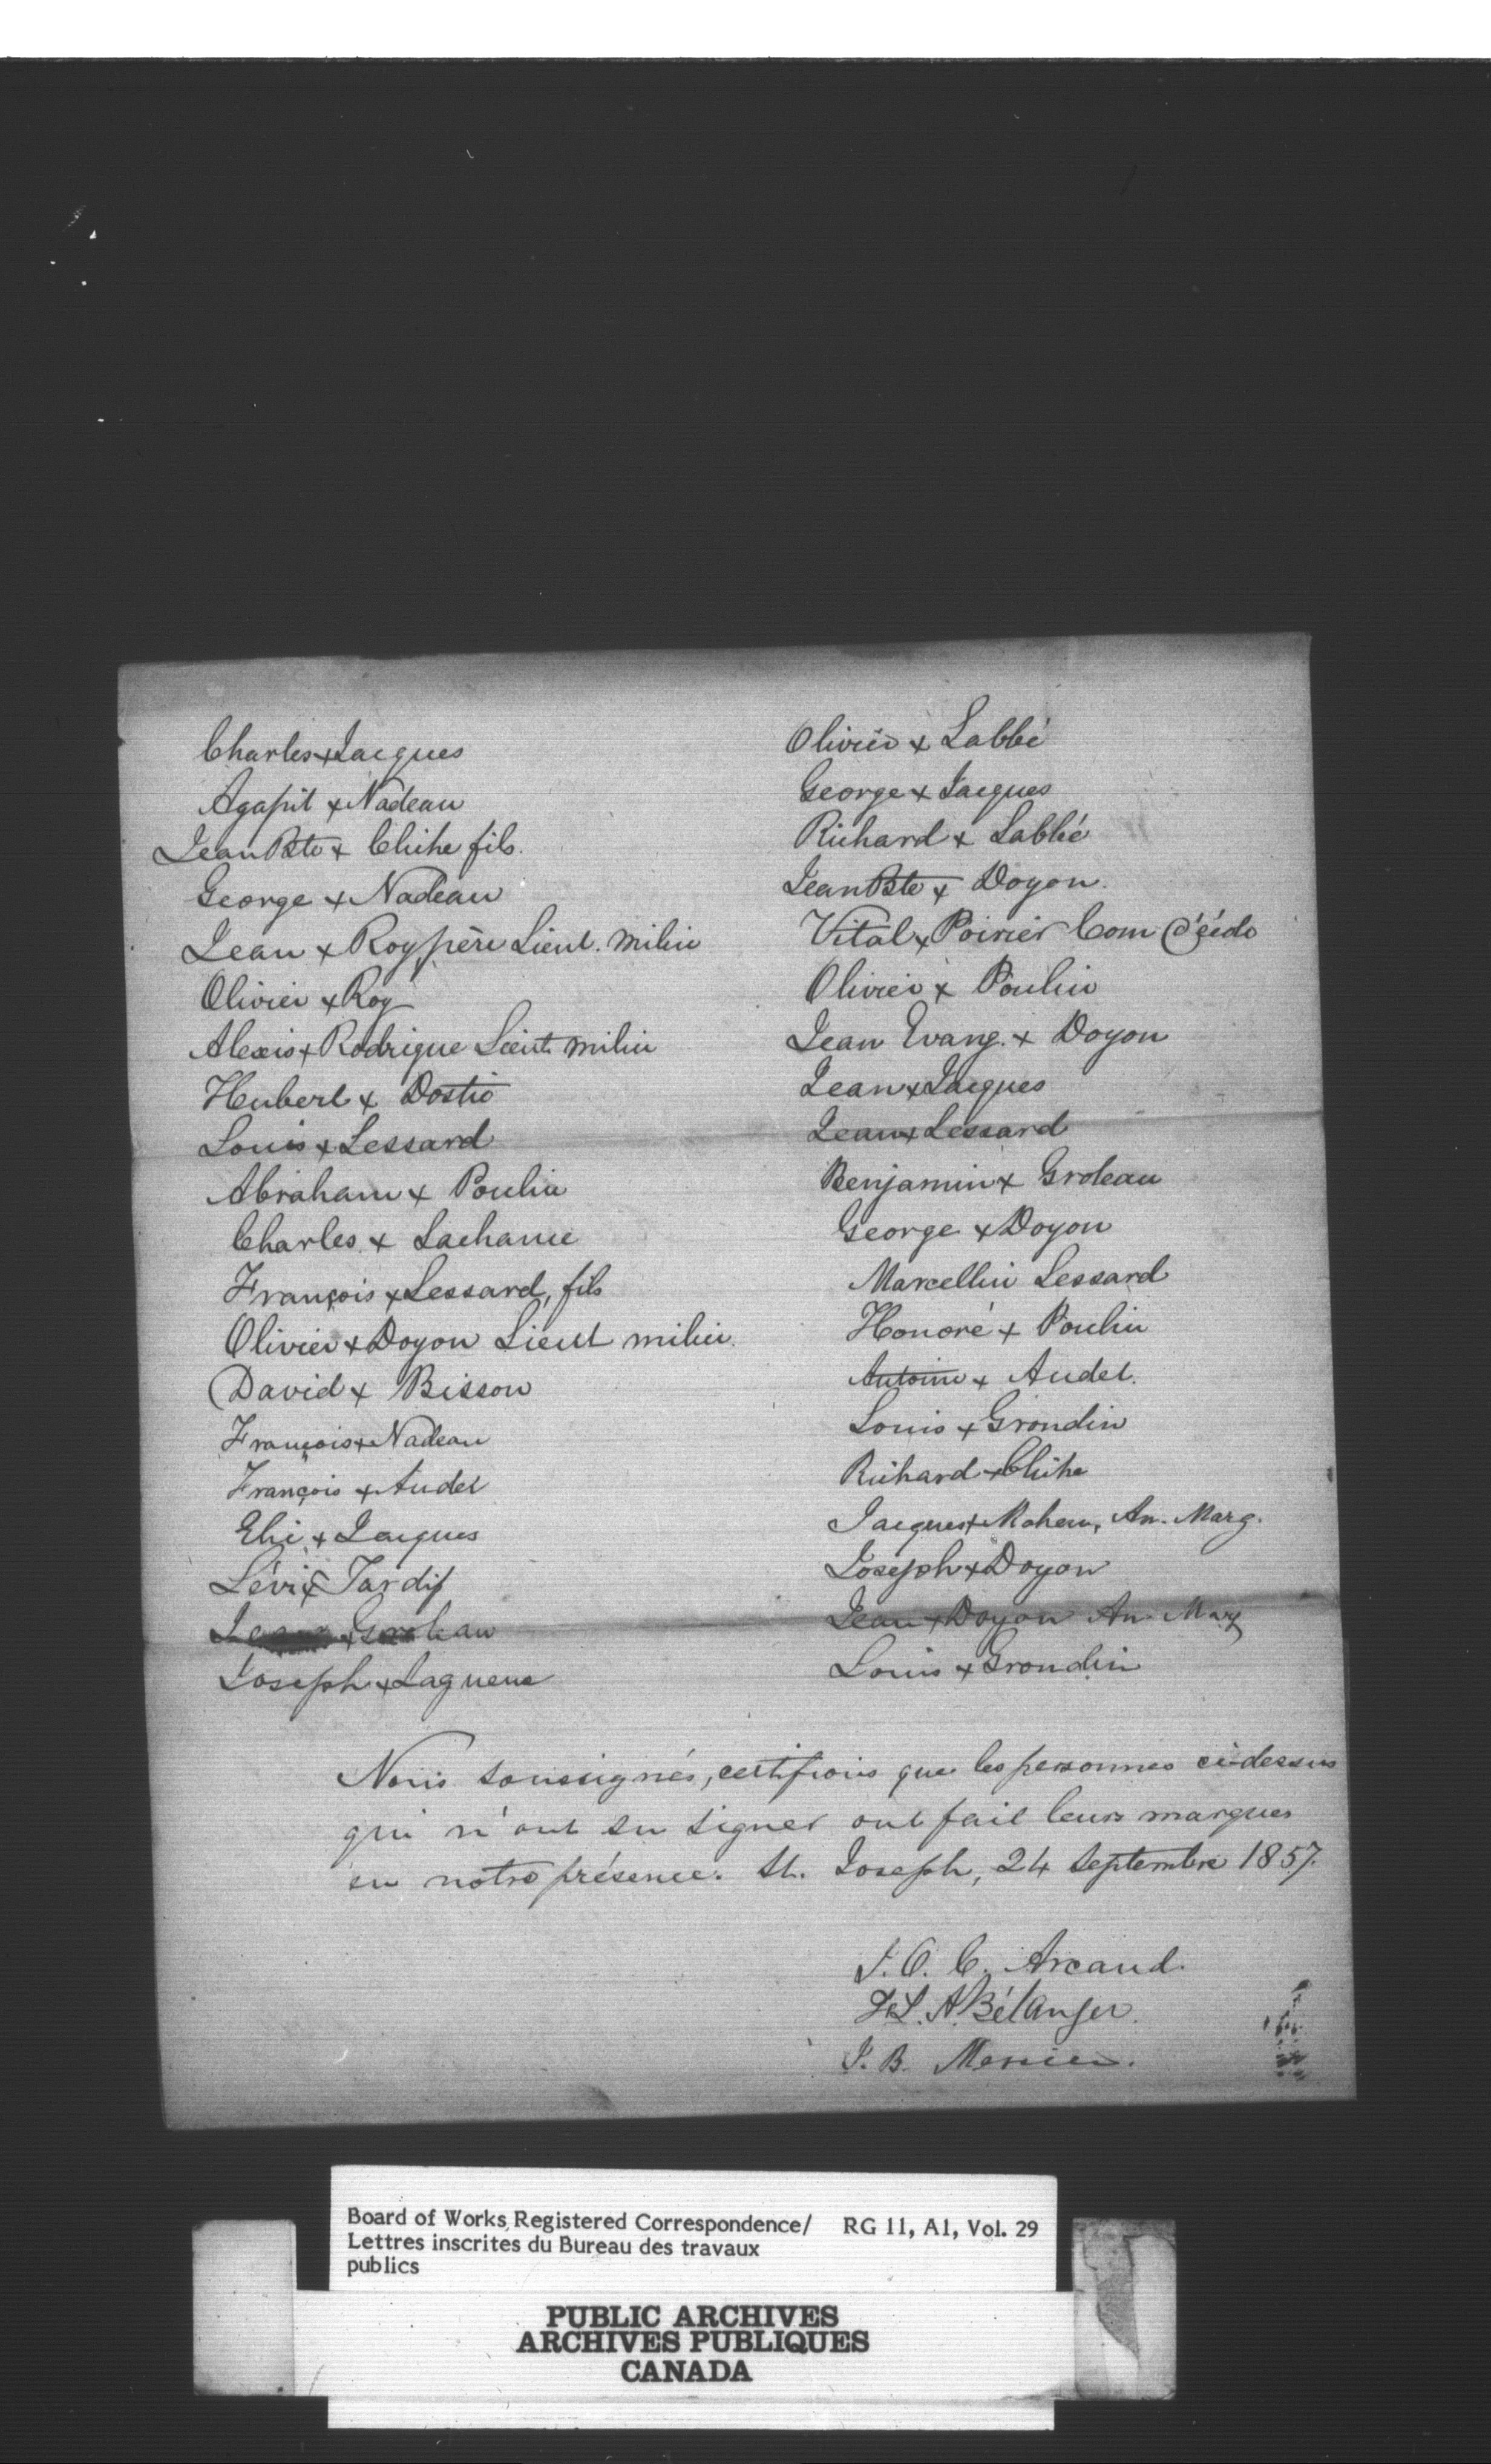 Charles + Jacques
Agapit + Nadeau
Jean Bte + Cliche fils.
George + Nadeau
Jean + Roy père Lieut. milice
Olivier + Roy
Alexis + Rodrigue Lieut milice
Hubert + Dostie
Louis + Lessard
Abraham + Poulin
Charles + Lachance
François + Lessard, fils
Olivier + Doyon Lieut milice.
David + Bisson
François + Nadeau
François + Audet
Elie + Jacques
Lévi + Tardif
+ Groleau
Joseph + Lagueue
Olivier + Labbé
George + Jacques
Richard + Labbé
Jean Bte + Doyon.
Vital + Poirier Com d'école
Olivier + Poulin
Jean Evang. + Doyon
Jean + Jacques
Jean + Lessard
Benjamin + Groleau
George + Doyon
Marcellin Lessard
Honoré + Poulin
Antoine + Audet.
Louis + Grondin
Richard + Cliche
Jacques + Maheu, An. Marg.
Joseph + Doyon
Jean + Doyon An. Marg
Louis + Grondin
Nous soussignés, certifions que les personnes ci-dessus
qui n'ont su signer ont fait leurs marques
en notre présence. St. Joseph, 24 Septembre 1857.
J. O. C. Arcand.
F. L. A. Bélanger.
J. B. Mercier.
Board of Works Registered Correspondence/ RG 11, A1, Vol. 29
Lettres inscrites du Bureau des travaux
publics
PUBLIC ARCHIVES
ARCHIVES PUBLIQUES
CANADA